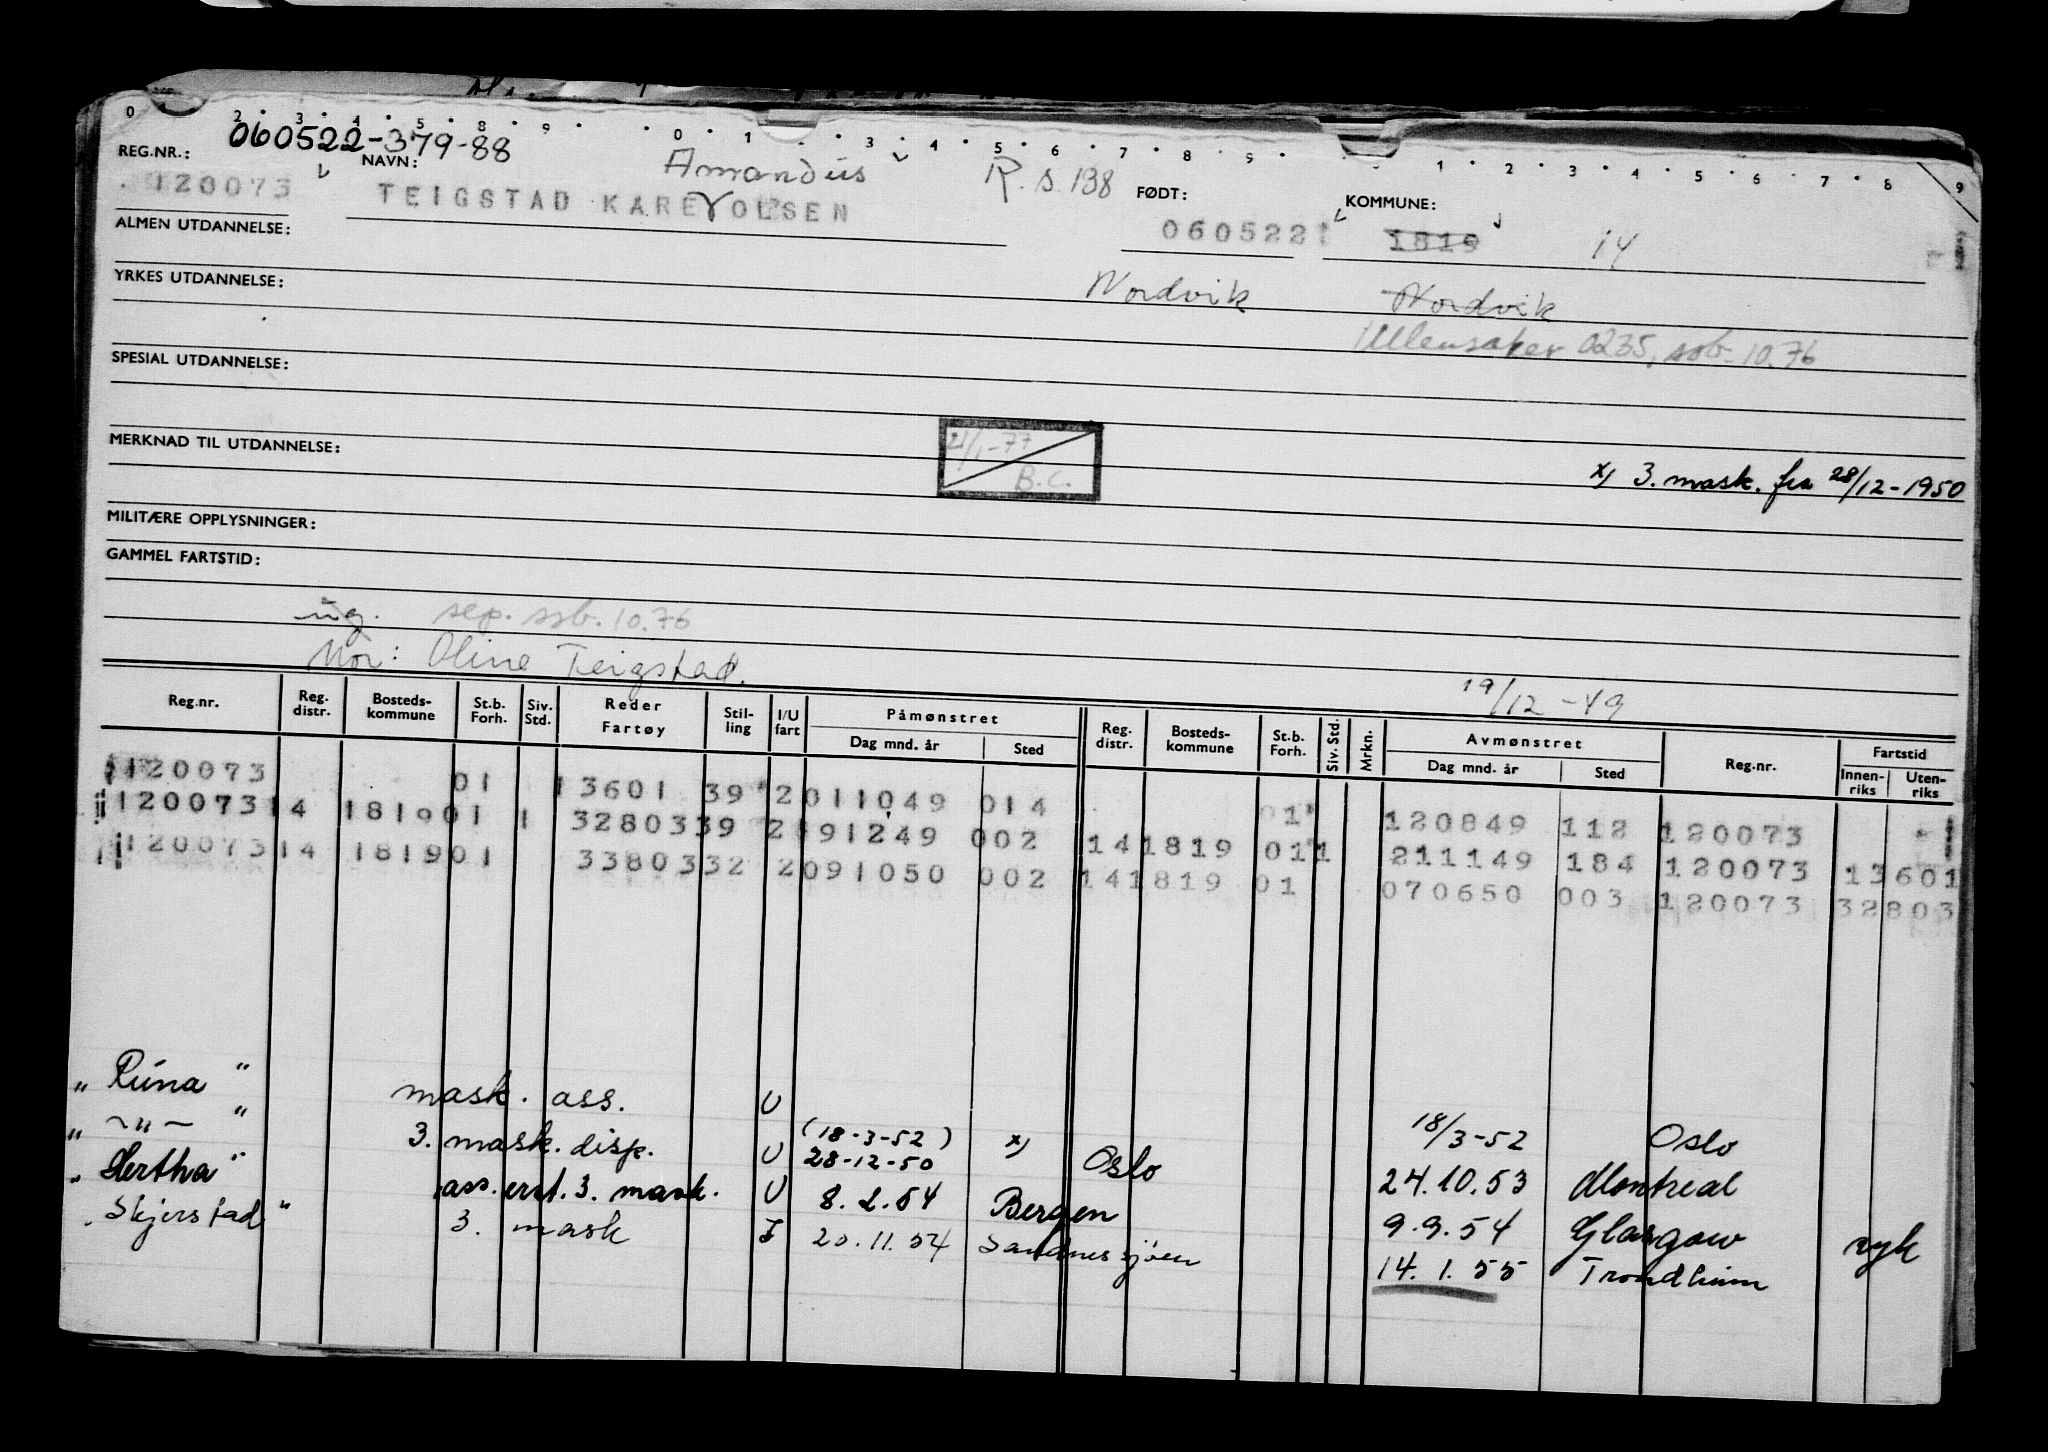 0 2 3 4 5 8 9 0 1 3 4 5 6 7 8 9 1 2 3 4 5 6 7 8 9
REG.NR.: 060522-379-88
NAVN: Amandus R.S. 138
120073 TEIGSTAD KARE OLSEN
FØDT: 060522 1
KOMMUNE: 1819 14
ALMEN UTDANNELSE:
YRKES UTDANNELSE: Nordvik Nordvik
Ullensaker 0235, ssb. 10.76
SPESIAL UTDANNELSE:
MERKNAD TIL UTDANNELSE:
21/1-77
B.C.
x) 3. mask. fra 28/12-1950
MILITÆRE OPPLYSNINGER:
GAMMEL FARTSTID:
ug. sep. ssb. 10.76
Mor: Oline Teigstad.
19/12-49
Reg.nr. Reg. distr. Bosteds-kommune St.b. Forh. Siv. Std. Reder Fartøy Stil-ling I/U fart Påmønstret Dag mnd. år Sted Reg. distr. Bosteds-kommune St.b. Forh. Siv. Std. Mrkn. Avmønstret Dag mnd. år Sted Reg.nr. Fartstid Innen-riks Uten-riks
120073 01 13601 39 2 011049 014 01 120849 112 120073
120073 14 1819 01 1 32803 39 2 191249 002 14 1819 01 1 211149 184 120073 13601
120073 14 1819 01 33803 32 2 091050 002 14 1819 01 070650 003 120073 32803
"Runa" mask. ass. U 18/3-52 Oslo
" -"- " 3. mask. disp. U (18-3-52) 28-12-50 x) Oslo 24.10.53 Montreal
"Hertha" ass. erst. 3. mask. U 8.2.54 Bergen 9.9.54 Glasgow syk
"Skjerstad" 3. mask I 20.11.54 Sandnessjøen 14.1.55 Trondheim